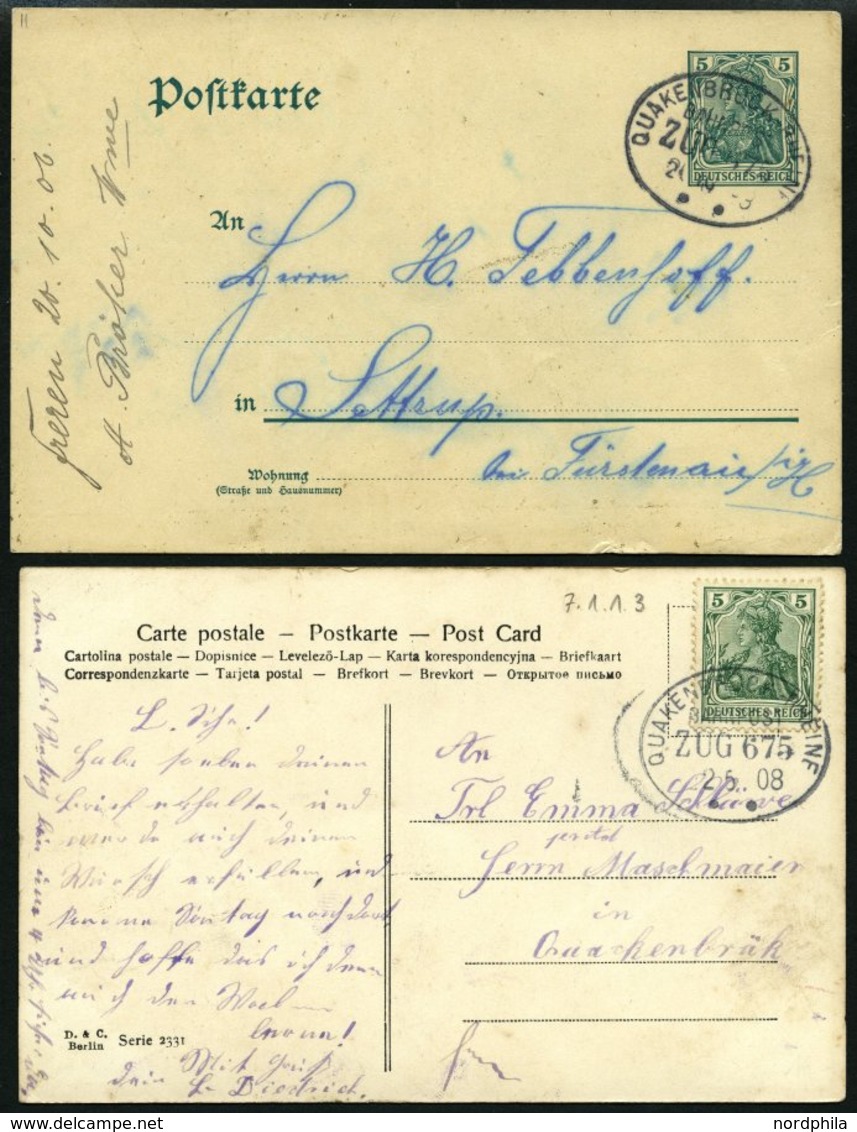 Postkarte
5 5
DEUTSCHES REICH
QUAKENBRÜCK RHEINE
BAHN
ZUG
20 10
Freren 20.10.06.
A. Bröker Wwe
An
Herrn H. Tebbenhoff.
in Settrup.
bei Fürstenau i/H
Wohnung
(Straße und Hausnummer)
7.1.1.3
Carte postale – Postkarte – Post Card
Cartolina postale – Dopisnice – Levelező-Lap – Karta korespondencyjna – Briefkaart
Correspondenzkarte – Tarjeta postal – Brefkort – Brevkort – Открытое письмо
5 5
DEUTSCHES REICH
QUAKENBRÜCK RHEINE
BAHNPOST
ZUG 675
2.5. 08
L. Schw!
Habe soeben deinen
Brief erhalten, und
werde auch deinen
Wunsch erfüllen, und
komme Sontag nach dort,
und hoffe das ich dann
auch den
kann!
Mit Gruß
dein L. Diedrich.
An
Frl Emma
Herrn Maschmaier
in
Quackenbrük
D. & C.
Berlin
Serie 2331
nordphila